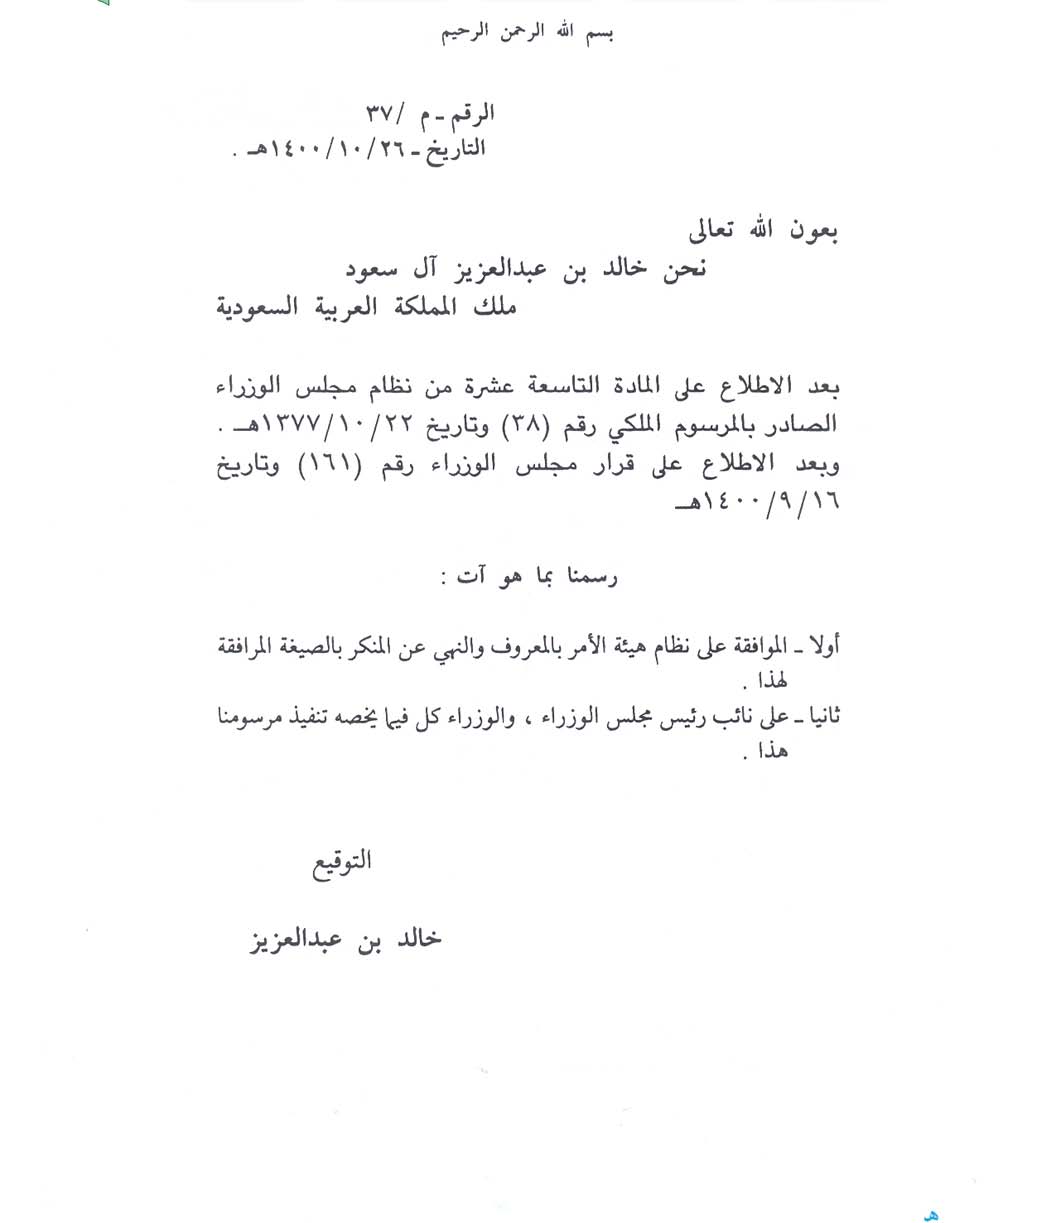 بسم الله الرحمن الرحيم
الرقم - م /٣٧
التاريخ - ١٤٠٠/١٠/٢٦هـ .
بعون الله تعالى
نحن خالد بن عبدالعزيز آل سعود
ملك المملكة العربية السعودية
بعد الاطلاع على المادة التاسعة عشرة من نظام مجلس الوزراء
الصادر بالمرسوم الملكي رقم (٣٨) وتاريخ ١٣٧٧/١٠/٢٢هـ .
وبعد الاطلاع على قرار مجلس الوزراء رقم (١٦١) وتاريخ
١٤٠٠/٩/١٦هـ
رسمنا بما هو آت :
أولا ـ الموافقة على نظام هيئة الأمر بالمعروف والنهي عن المنكر بالصيغة المرافقة
لهذا .
ثانيا ـ على نائب رئيس مجلس الوزراء ، والوزراء كل فيما يخصه تنفيذ مرسومنا
هذا .
التوقيع
خالد بن عبدالعزيز
هـ